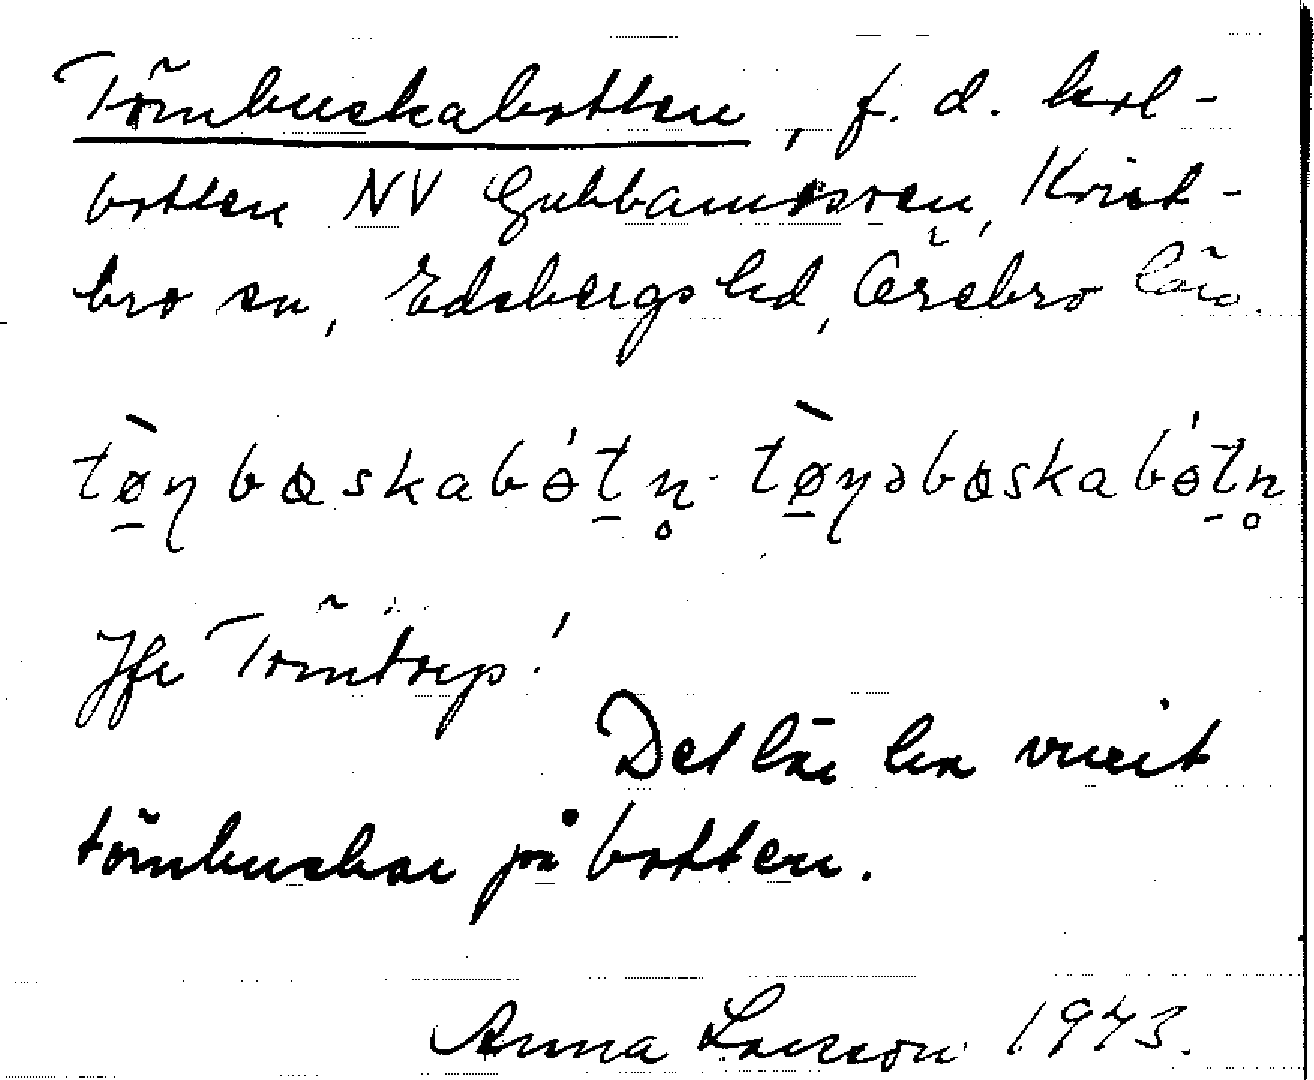 Törnbuskabotten, f. d. kol-
botten NV Gubbamossen, Kvist-
bro sn, Edsbergs hd, Örebro län.
tø̱̀ɳbɷskabɵ́ṯn̥ · tø̱̀ɳəbɷskabɵ́ṯn̥
Jfr Törntorp!
Det lär ha vuxit
törnbuskar på botten.
Anna Larsson 1943.